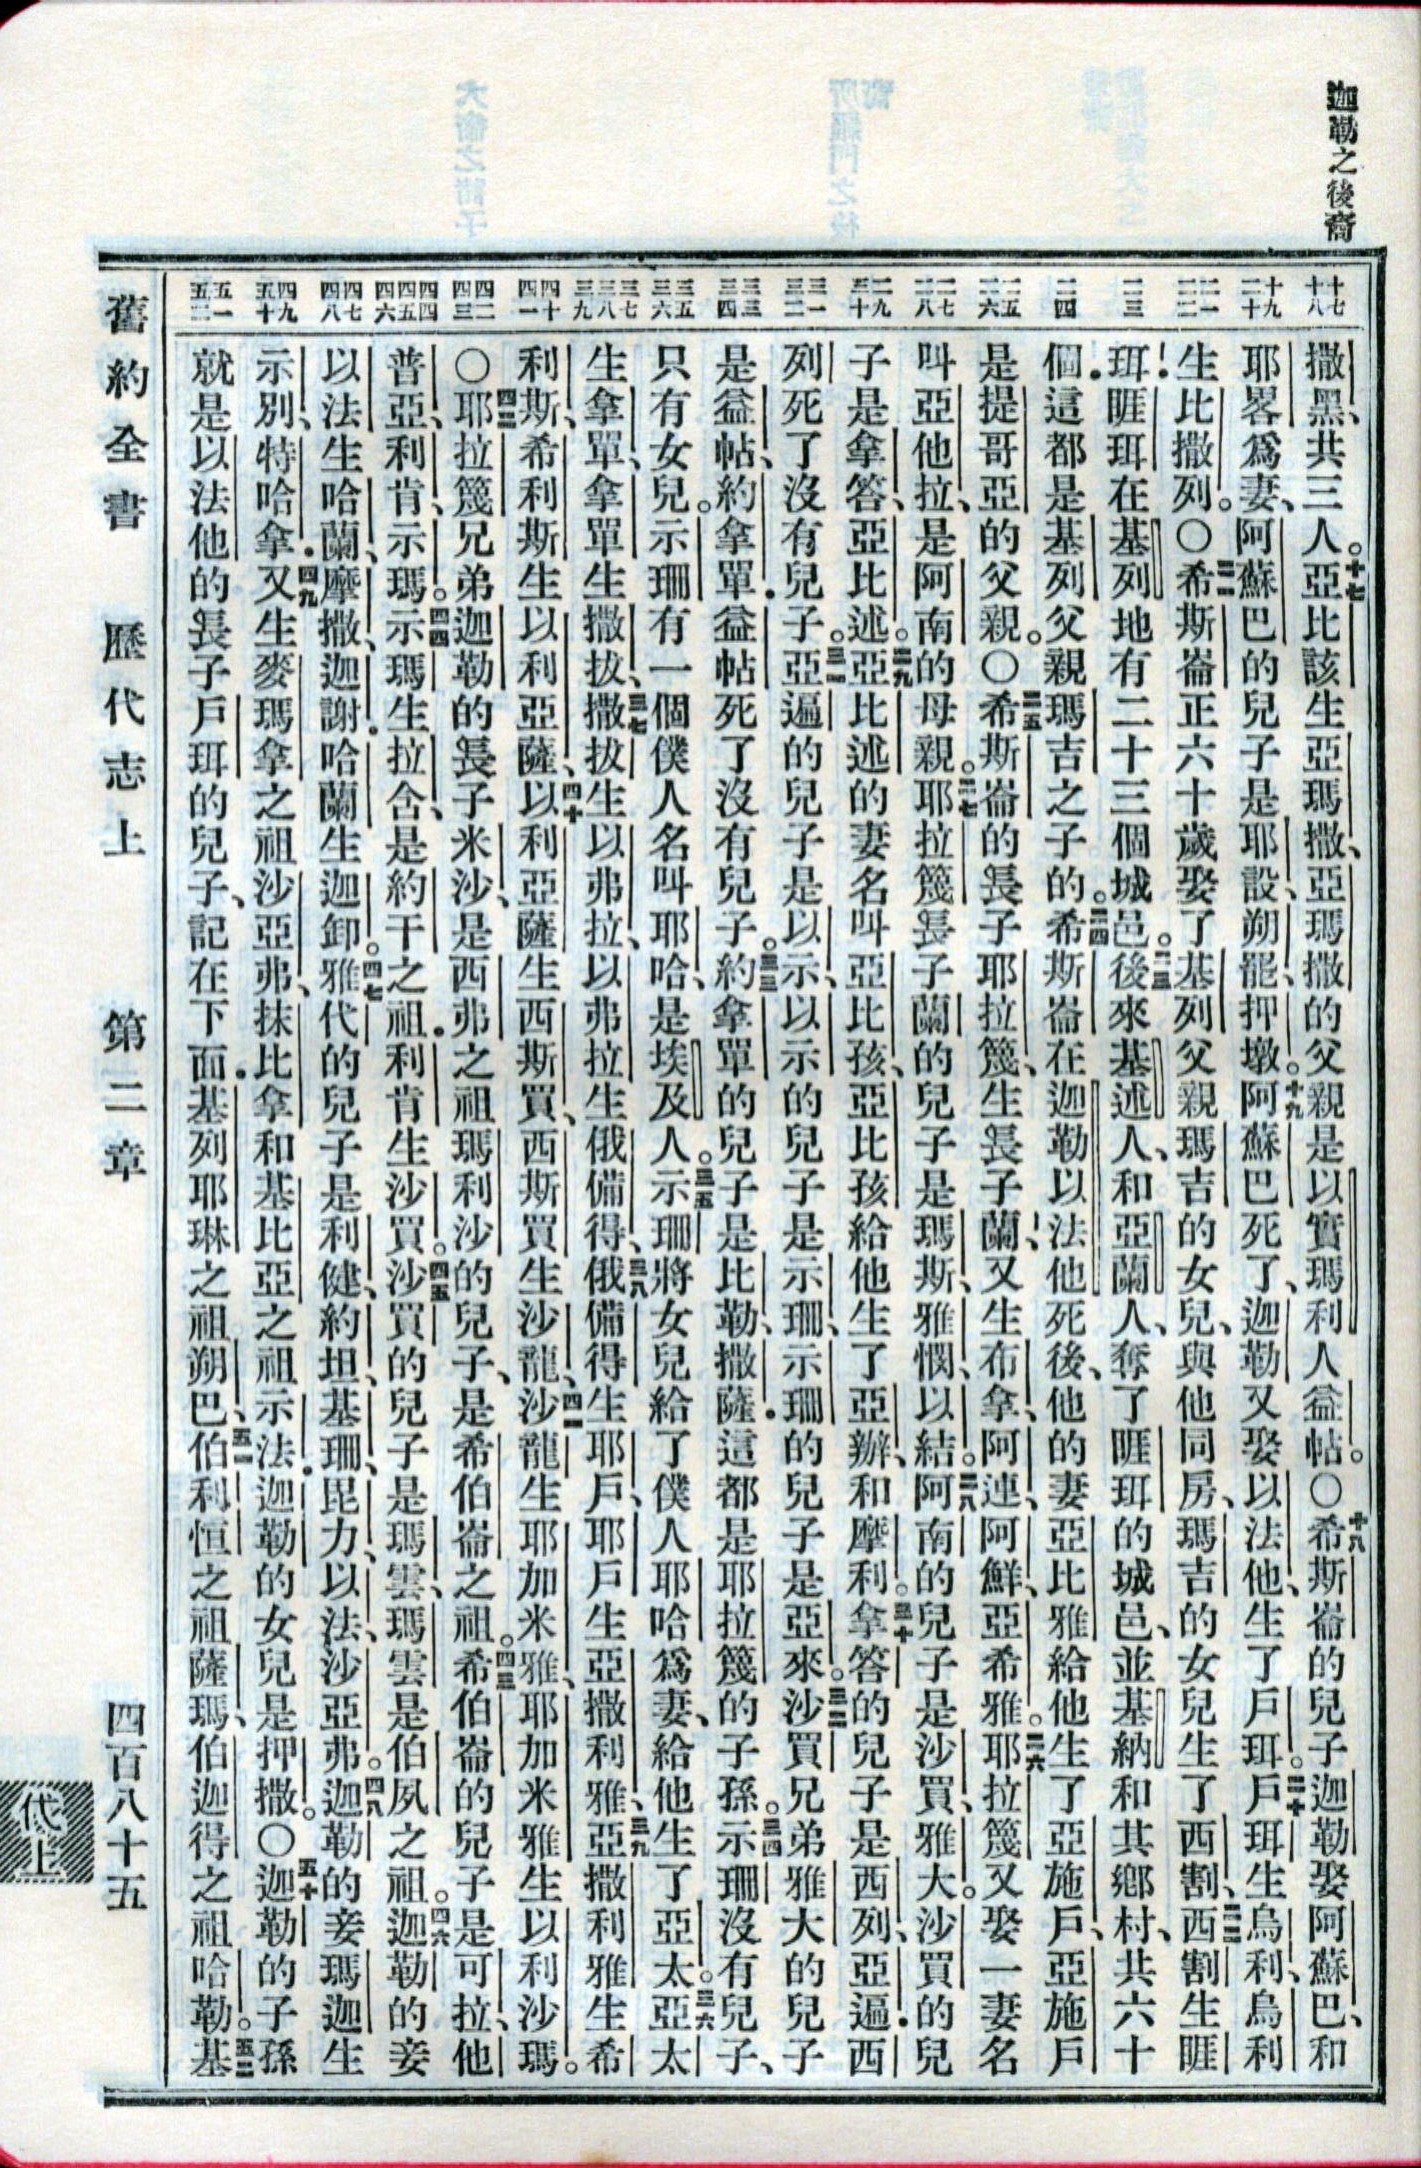 迦勒之後裔
十七 十八 十九 二十 二一 二二 二三 二四 二五 二六 二七 二八 二九 三十 三一 三二 三三 三四 三五 三六 三七 三八 三九 四十 四一 四二 四三 四四 四五 四六 四七 四八 四九 五十 五一 五二
撒黑、共三人。十七亞比該生亞瑪撒、亞瑪撒的父親是以實瑪利人益帖。〇十八希斯崙的兒子迦勒娶阿蘇巴、和
耶畧爲妻、阿蘇巴的兒子是耶設、朔罷、押墩。十九阿蘇巴死了、迦勒又娶以法他、生了戶珥。二十戶珥生烏利、烏利
生比撒列。〇二一希斯崙正六十歲娶了基列父親瑪吉的女兒、與他同房、瑪吉的女兒生了西割、二二西割生睚
珥．睚珥在基列地有二十三個城邑。二三後來基述人、和亞蘭人、奪了睚珥的城邑、並基納和其鄉村、共六十
個．這都是基列父親瑪吉之子的。二四希斯崙在迦勒以法他死後、他的妻亞比雅給他生了亞施戶、亞施戶
是提哥亞的父親。〇二五希斯崙的長子耶拉篾、生長子蘭、又生布拿、阿連、阿鮮、亞希雅。二六耶拉篾又娶一妻名
叫亞他拉、是阿南的母親。二七耶拉篾長子蘭的兒子是瑪斯、雅憫、以結。二八阿南的兒子是沙買、雅大。沙買的兒
子是拿答、亞比述。二九亞比述的妻名叫亞比孩、亞比孩給他生了亞辦、和摩利。三十拿答的兒子是西列、亞遍．西
列死了沒有兒子。三一亞遍的兒子是以示、以示的兒子是示珊、示珊的兒子是亞來。三二沙買兄弟雅大的兒子
是益帖、約拿單．益帖死了沒有兒子。三三約拿單的兒子是比勒、撒薩．這都是耶拉篾的子孫。三四示珊沒有兒子、
只有女兒。示珊有一個僕人名叫耶哈、是埃及人。三五示珊將女兒給了僕人耶哈爲妻、給他生了亞太。三六亞太
生拿單、拿單生撒拔、三七撒拔生以弗拉、以弗拉生俄備得、三八俄備得生耶戶、耶戶生亞撒利雅、三九亞撒利雅生希
利斯、希利斯生以利亞薩、四十以利亞薩生西斯買、西斯買生沙龍、四一沙龍生耶加米雅、耶加米雅生以利沙瑪。
〇四二耶拉篾兄弟迦勒的長子米沙、是西弗之祖瑪利沙的兒子、是希伯崙之祖。四三希伯崙的兒子是可拉、他
普亞、利肯、示瑪。四四示瑪生拉含、是約干之祖．利肯生沙買。四五沙買的兒子是瑪雲、瑪雲是伯夙之祖。四六迦勒的妾
以法生哈蘭、摩撒、迦謝．哈蘭生迦卸。四七雅代的兒子是利健、約坦、基珊、毘力、以法、沙亞弗。四八迦勒的妾瑪迦生
示別、特哈拿．四九又生麥瑪拿之祖沙亞弗、抹比拿和基比亞之祖示法．迦勒的女兒是押撒。〇五十迦勒的子孫
就是以法他的長子戶珥的兒子、記在下面．基列耶琳之祖朔巴、五一伯利恆之祖薩瑪、伯迦得之祖哈勒。五二基
舊約全書
歷代志上
第二章
四百八十五
代上